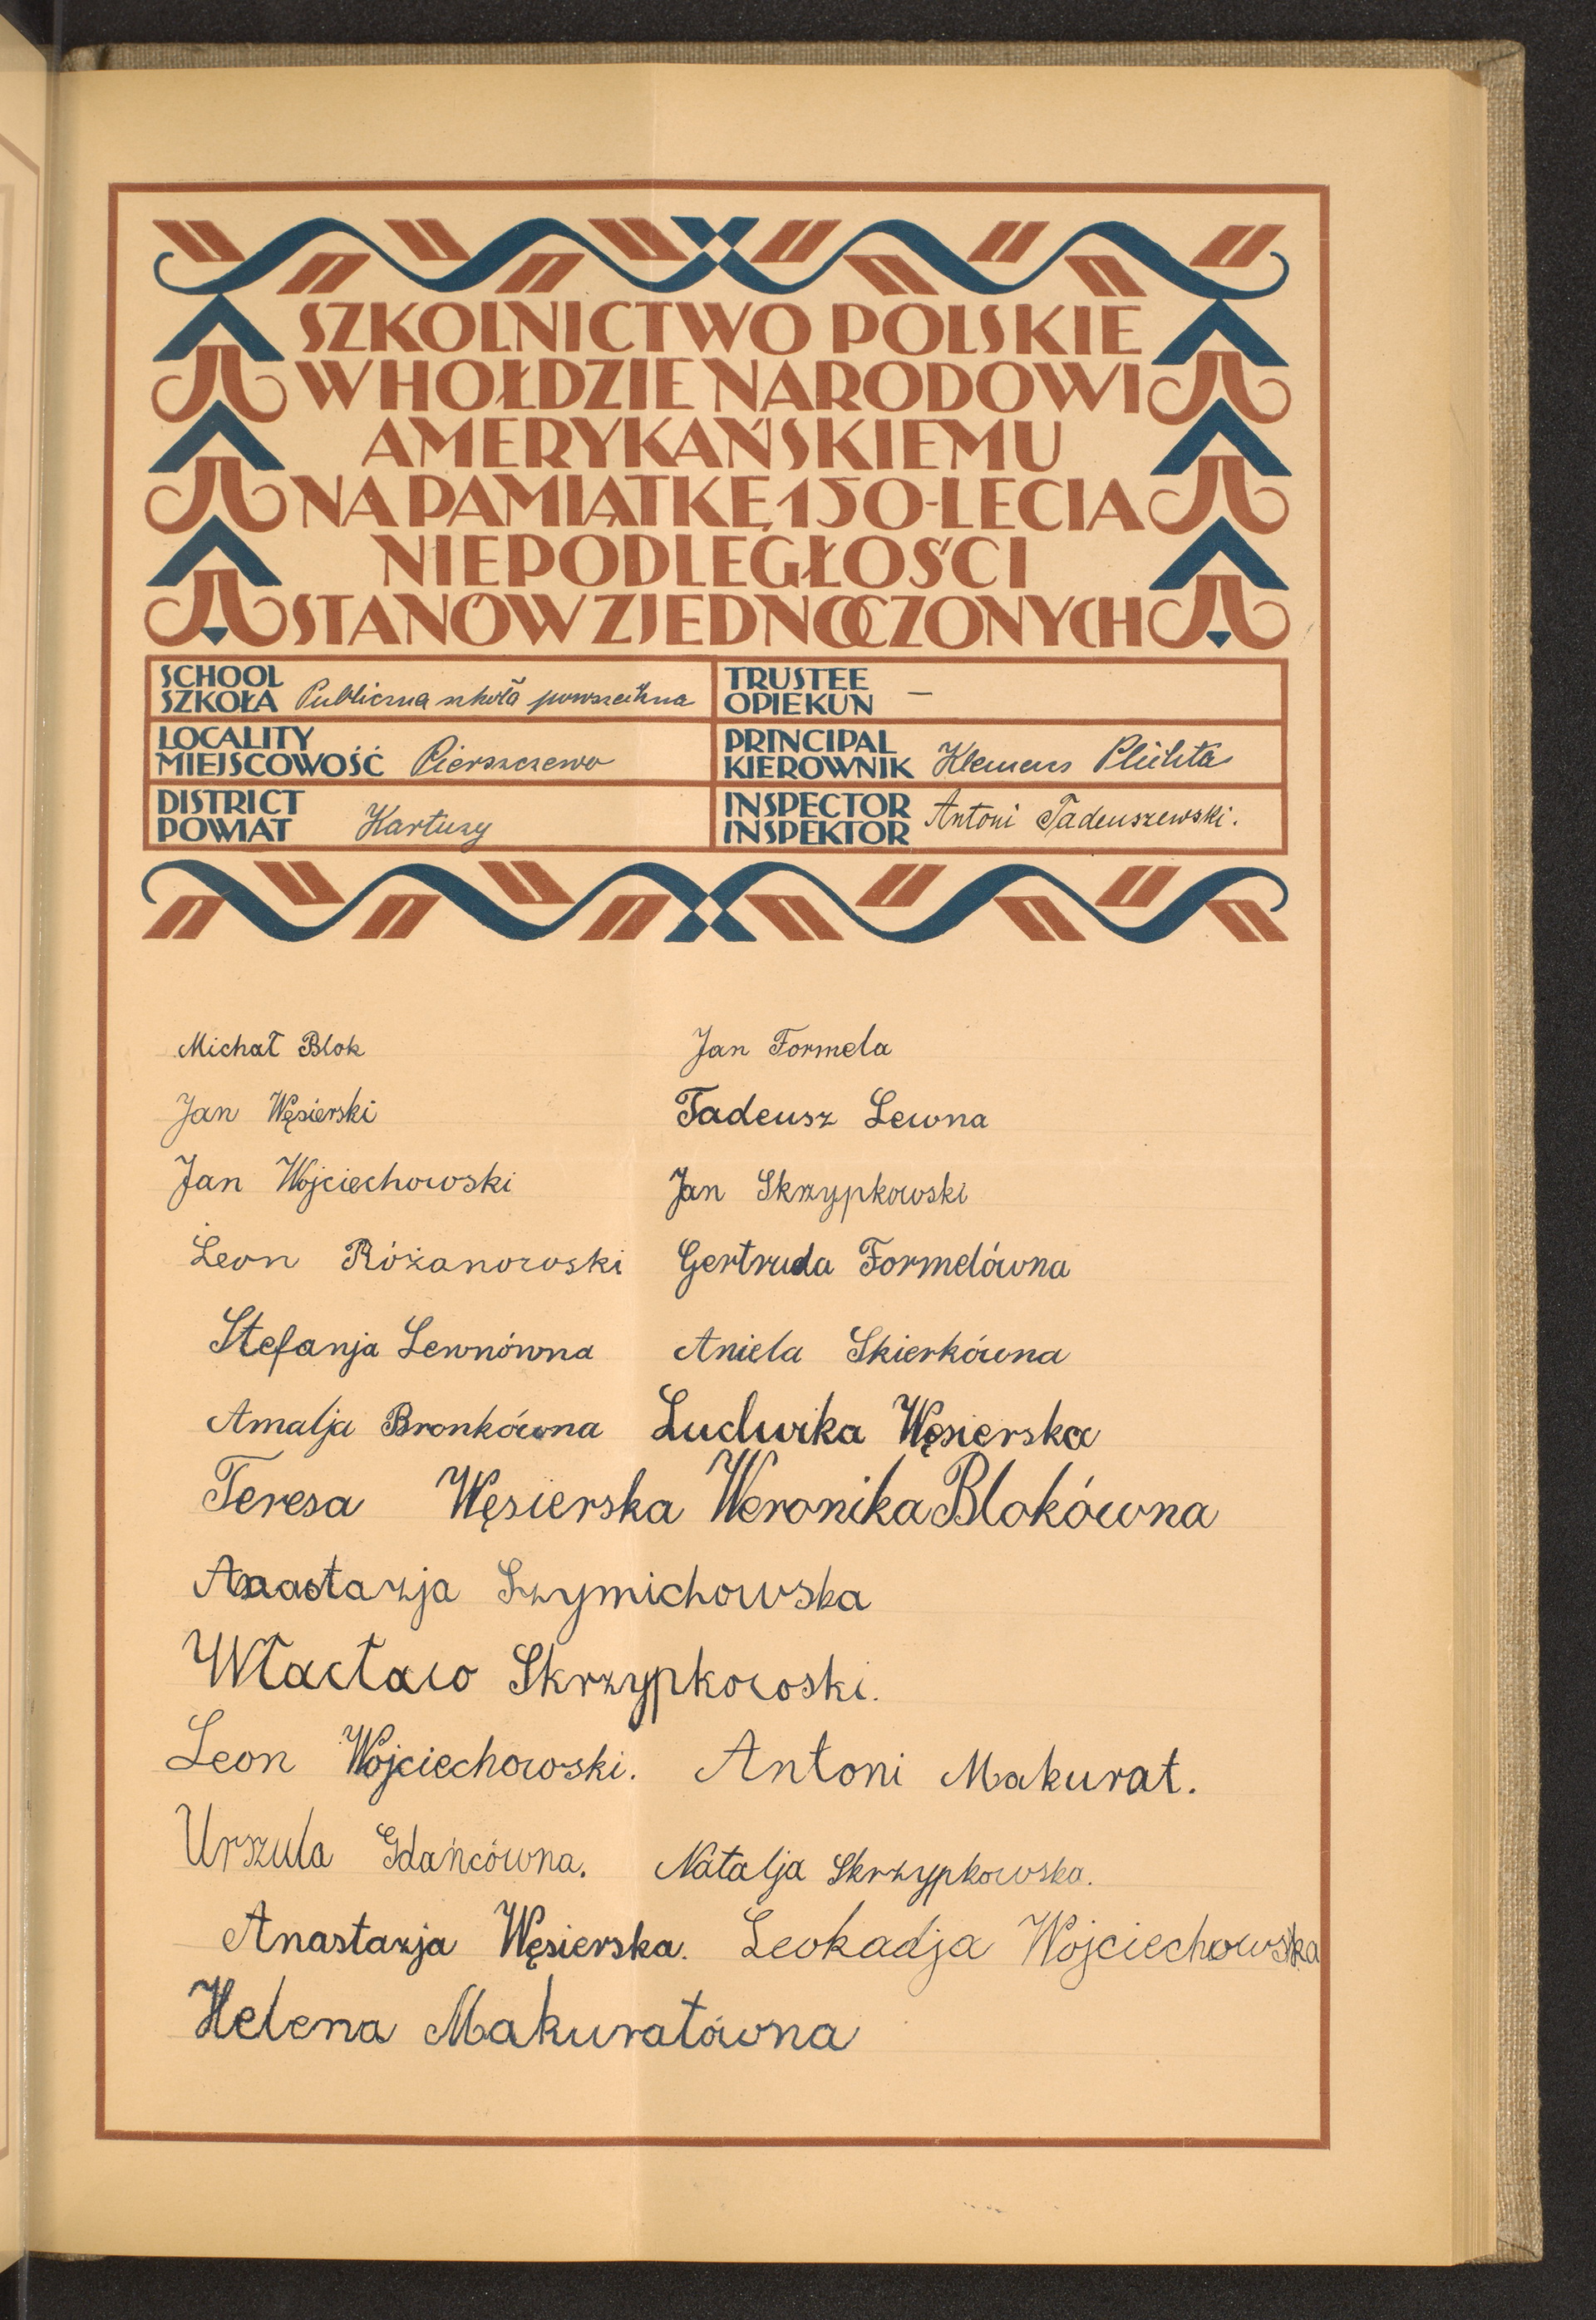 SZKOLNICTWO POLSKIE
W HOŁDZIE NARODOWI
AMERYKAŃSKIEMU
NA PAMIĄTKĘ 150-LECIA
NIEPODLEGŁOŚCI
STANÓW ZJEDNOCZONYCH
SCHOOL
SZKOŁA Publiczna szkoła powszechna
TRUSTEE
OPIEKUN —
LOCALITY
MIEJSCOWOŚĆ Pierszczewo
PRINCIPAL
KIEROWNIK Klemens Plichta
DISTRICT
POWIAT Kartuzy
INSPECTOR
INSPEKTOR Antoni Tadeuszewski.
Michał Blok Jan Formela
Jan Węsierski Tadeusz Lewna
Jan Wojciechowski Jan Skrzypkowski
Leon Różanowski Gertruda Formelówna
Stefanja Lewnówna Aniela Skierkówna
Amalja Bronkówna Ludwika Węsierska
Teresa Węsierska Weronika Blokówna
Anastazja Szymichowska
Włacław Skrzypkowski.
Leon Wojciechowski. Antoni Makurat.
Urszula Gdańcówna. Natalja Skrzypkowska.
Anastazja Węsierska. Leokadja Wojciechowska
Helena Makuratówna